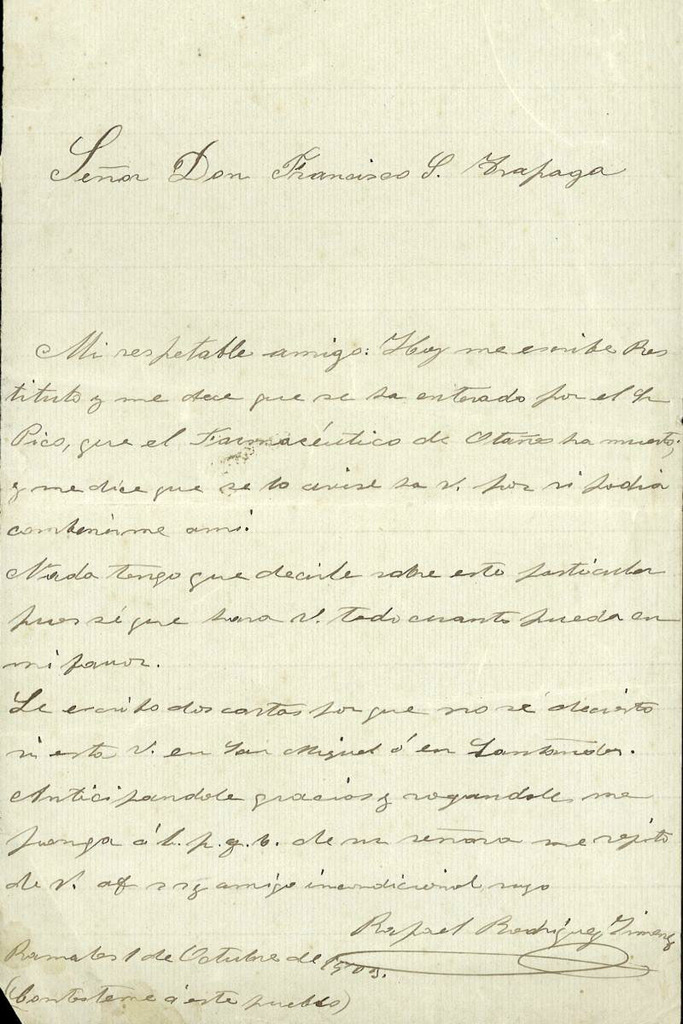 Señor Don Francisco S. Trapaga
Mi respetable amigo: Hoy me escribe Res
tituto y me dice que se ha enterado por el Sr
Pico, que el Farmacéutico de Otañes ha muerto;
y me dice que se lo avise ha V. por si podia
combenirme ami.
Nada tengo que decirle sobre este particular
pues sé que hara V. todo cuanto pueda en
mi favor.
Le escribo dos cartas por que no sé decierto
si esta V. en San Miguel ó en Santander.
Anticipandole gracias y rogandole me
ponga á l. p. q. b. de su señora me repito
de V. af s s y amigo incondicional suyo
Rafael Rodríguez Jimenez
Ramales 1 de Octubre de 1909.
(Contésteme á este pueblo)